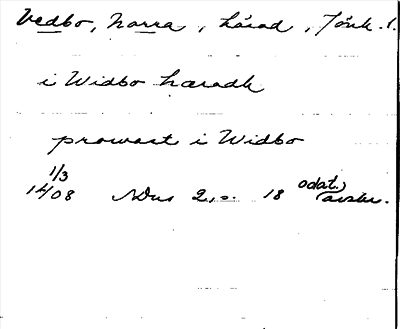 Vedbo, Norra, härad, Jönk. l.
i Widbo hæradh
prowast i Widbo
1/3
1408 SDns 2, s. 18 odat. avskr.